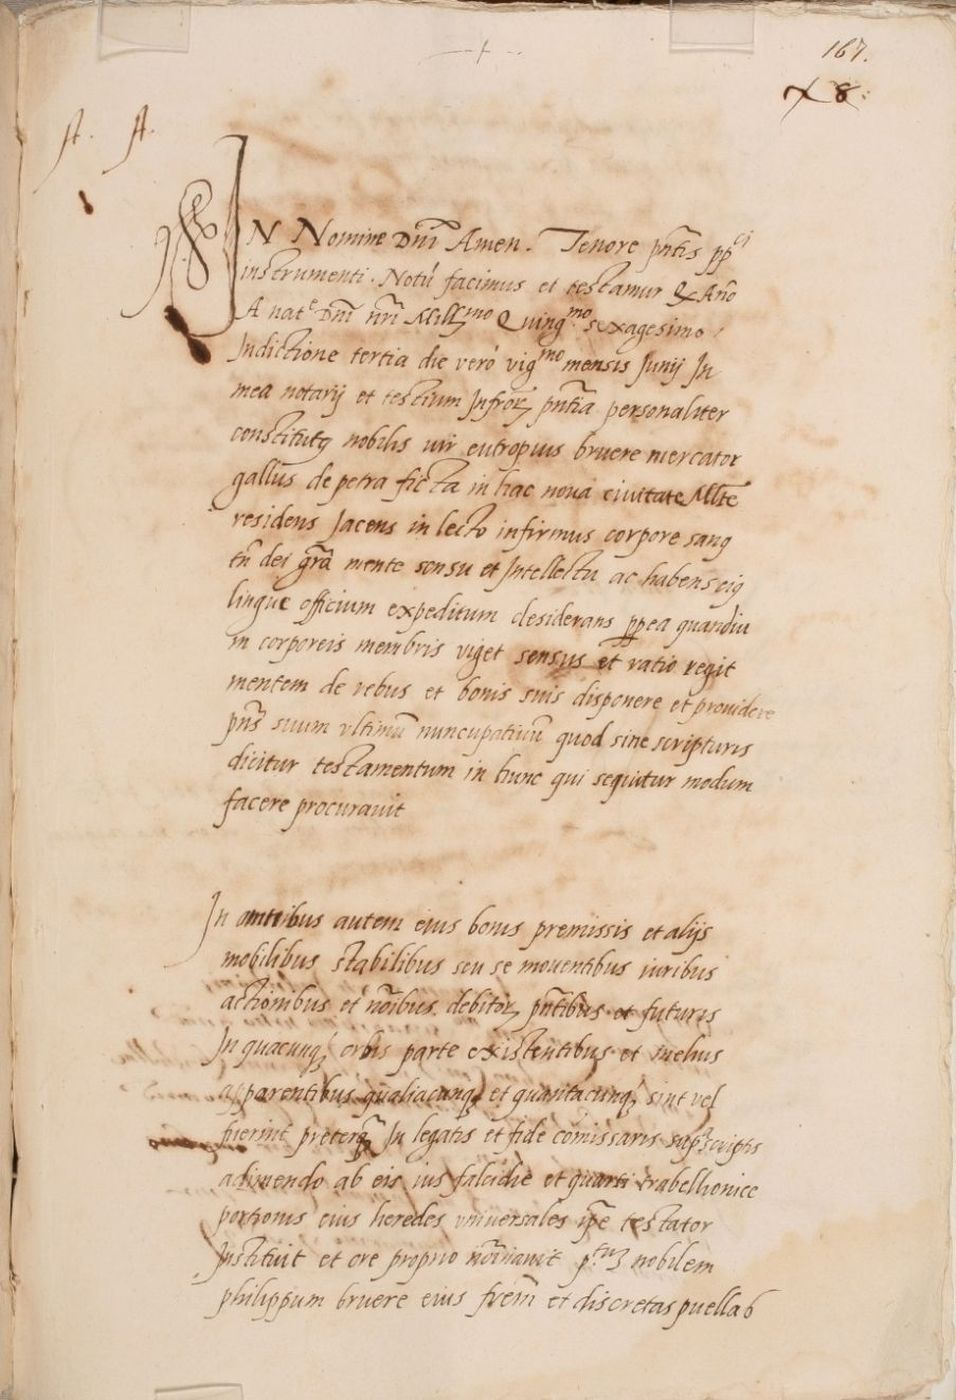 167.
8
A. A.
IN Nomine Dnī Amen. Tenore pn̄tis pp̄ci
instrumenti. Notū facimus et testamur Q Anō
A nate Dnī nrī Millmo Quingmo sexagesimo
Indictione tertia die vero vigmo mensis Junij In
mea notarij et testium Infror pn̄tia personaliter
constitutq nobilis vir eutropius bruere mercator
gallus de petra ficta in hac nova civitate Mltē
residens Jacens in lecto infirmus corpore sanq
tn̄ dei grā mente sensu et Intellectu ac habens eiq
lingue officium expeditum desiderans pp̄ea quandiu
in corporeis membris viget sensus et ratio regit
mentem de rebus et bonis suis disponere et providere
pn̄s suum vltimū nuncupativū quod sine scripturis
dicitur testamentum in hunc qui sequitur modum
facere procuravit
In omnibus autem eius bonis premissis et alijs
mobilibus stabilibus seu se moventibus iuribus
actionibus et nōibus debitor pn̄tibus et futuris
In quacunq orbis parte existentibus et melius
apparentibus qualiacunq et quantacunq sint vel
fuerint preterq In legatis et fide comissaris supscriptis
adimendo ab eis ius falcidie et quarti trabellionice
portionis eius heredes vniversales ip̄e testator
Instituit et ore proprio nōinavit ptuz nobilem
philippum bruere eius frem̄ et discretas puellas